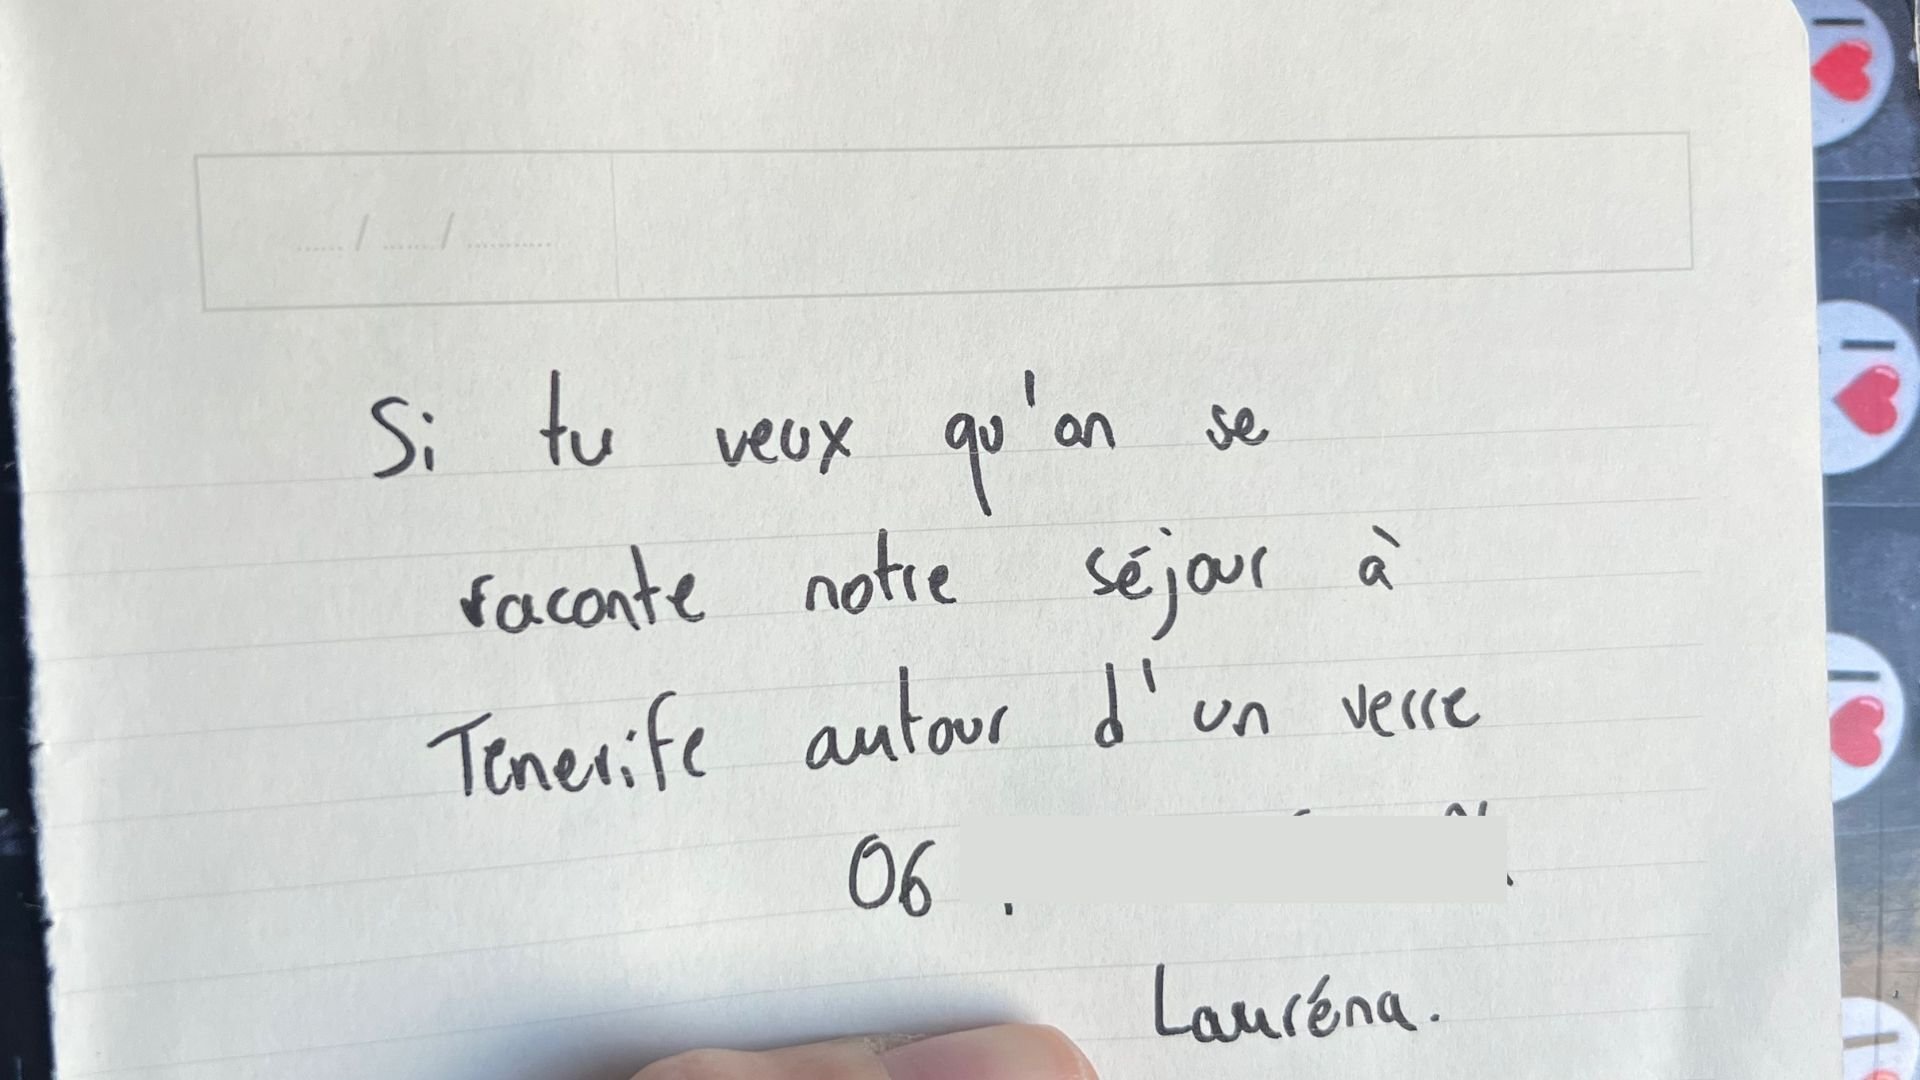 Si tu veux qu'on se
raconte notre séjour à
Tenerife autour d'un verre
06
Lauréna.
I
I
I